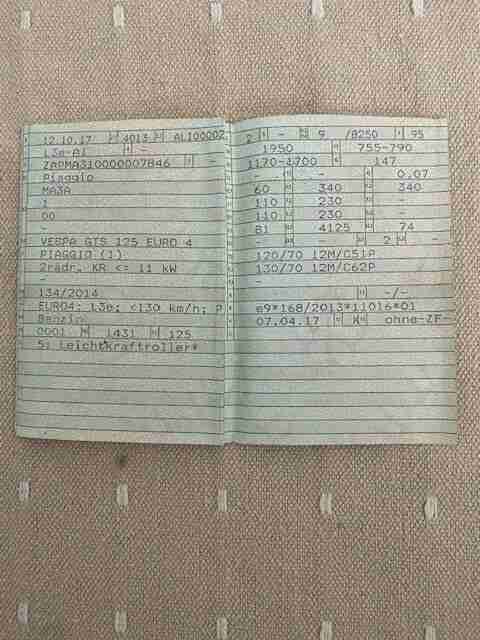 12.10.17 4013 AL100002
L3e-A1 -
ZAPMA310000007846 -
Piaggio
MA3A
1
00
-
VESPA GTS 125 EURO 4
PIAGGIO (I)
2rädr. KR <= 11 kW
-
134/2014
EURO4; L3e; <130 km/h; P
Benzin
0001 1431 125
5: Leichtkraftroller*
2 - 9 /8250 95
1950 755-790
1170-1700 147
- - 0.07
60 340 340
110 230 -
110 230 -
81 4125 74
- - 2 -
120/70 12M/C51P
130/70 12M/C62P
-
-/-
e9*168/2013*11016*01
07.04.17 K ohne-ZF-